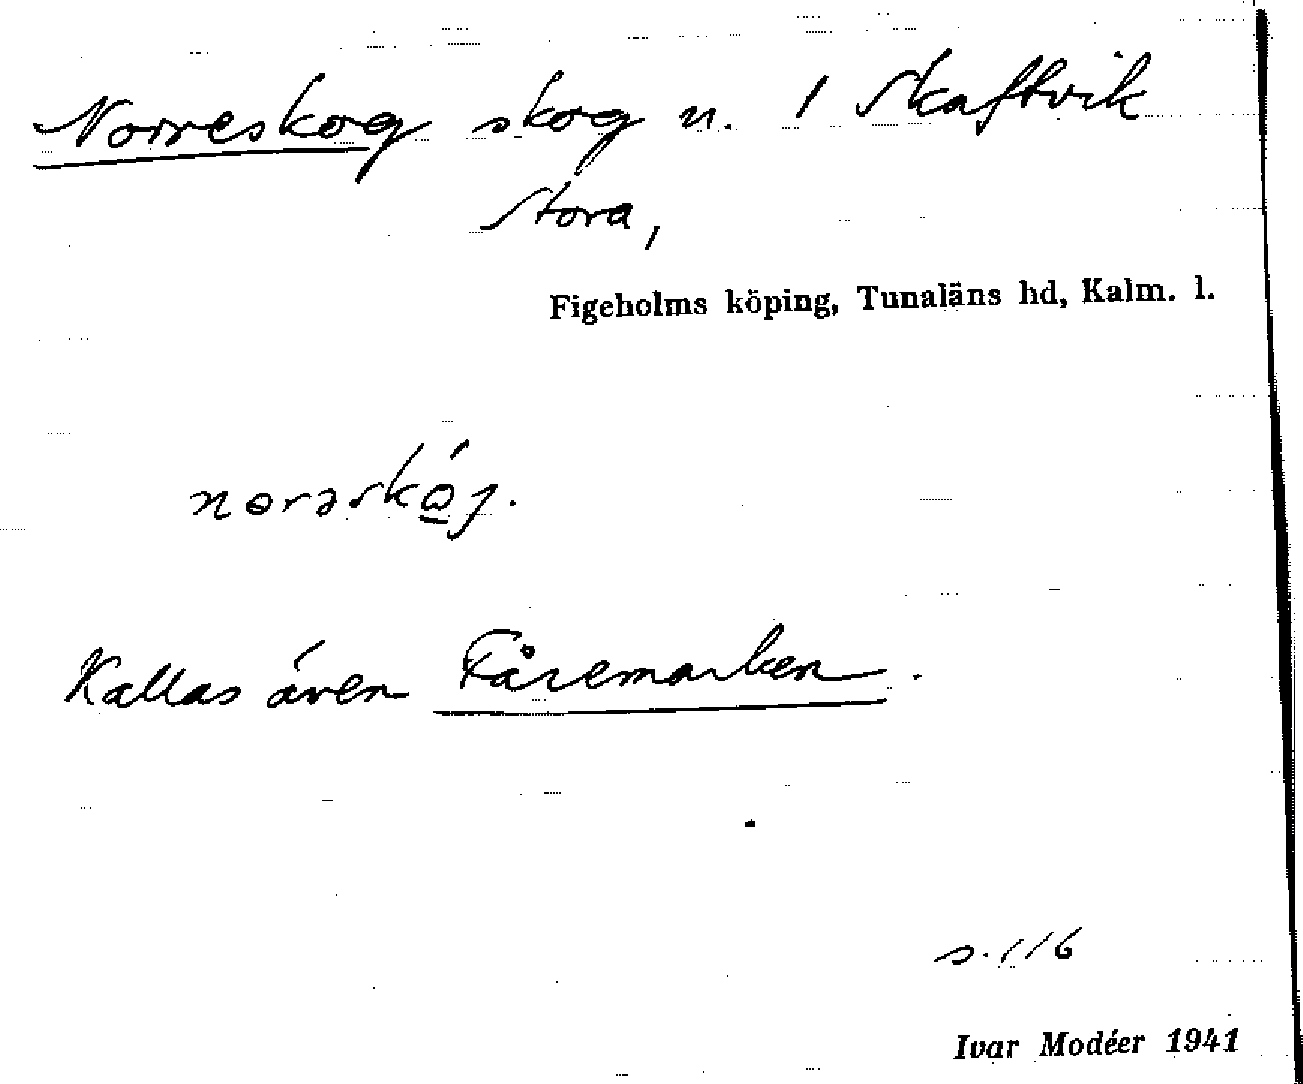 Norreskog skog n. 1 Skaftvik
Stora,
Figeholms köping, Tunaläns hd, Kalm. l.
Kallas även Fåremarken.
s. 116
Ivar Modéer 1941